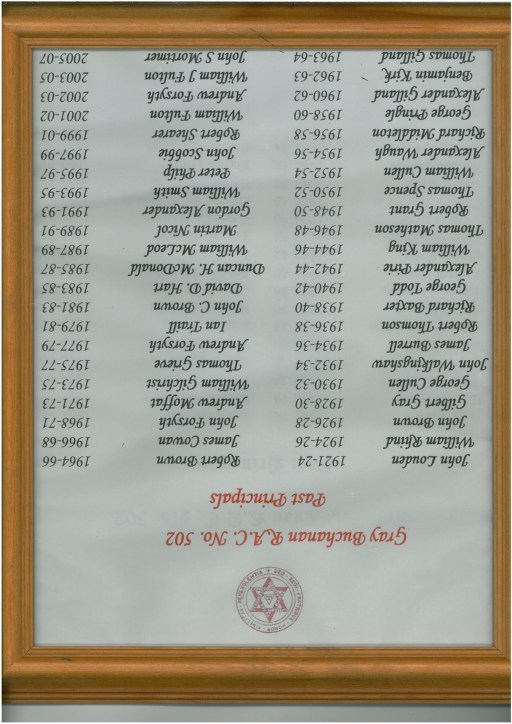 Gray Buchanan R.A.C. No. 502
Past Principals
John Louden 1921-24 Robert Brown 1964-66
William Rhind 1924-26 James Cowan 1966-68
John Brown 1926-28 John Forsyth 1968-71
Gilbert Gray 1928-30 Andrew Moffat 1971-73
George Cullen 1930-32 William Gilchrist 1973-75
John Walkingshaw 1932-34 Thomas Grieve 1975-77
James Burrell 1934-36 Andrew Forsyth 1977-79
Robert Thomson 1936-38 Ian Traill 1979-81
Richard Baxter 1938-40 John C. Brown 1981-83
George Todd 1940-42 David D. Hart 1983-85
Alexander Pirie 1942-44 Duncan H. McDonald 1985-87
William King 1944-46 William McLeod 1987-89
Thomas Matheson 1946-48 Martin Nicol 1989-91
Robert Grant 1948-50 Gordon Alexander 1991-93
Thomas Spence 1950-52 William Smith 1993-95
William Cullen 1952-54 Peter Philp 1995-97
Alexander Waugh 1954-56 John Scobbie 1997-99
Richard Middleton 1956-58 Robert Shearer 1999-01
George Pringle 1958-60 William Fulton 2001-02
Alexander Gilland 1960-62 Andrew Forsyth 2002-03
Benjamin Kirk 1962-63 William J Fulton 2003-05
Thomas Gilland 1963-64 John S Mortimer 2005-07